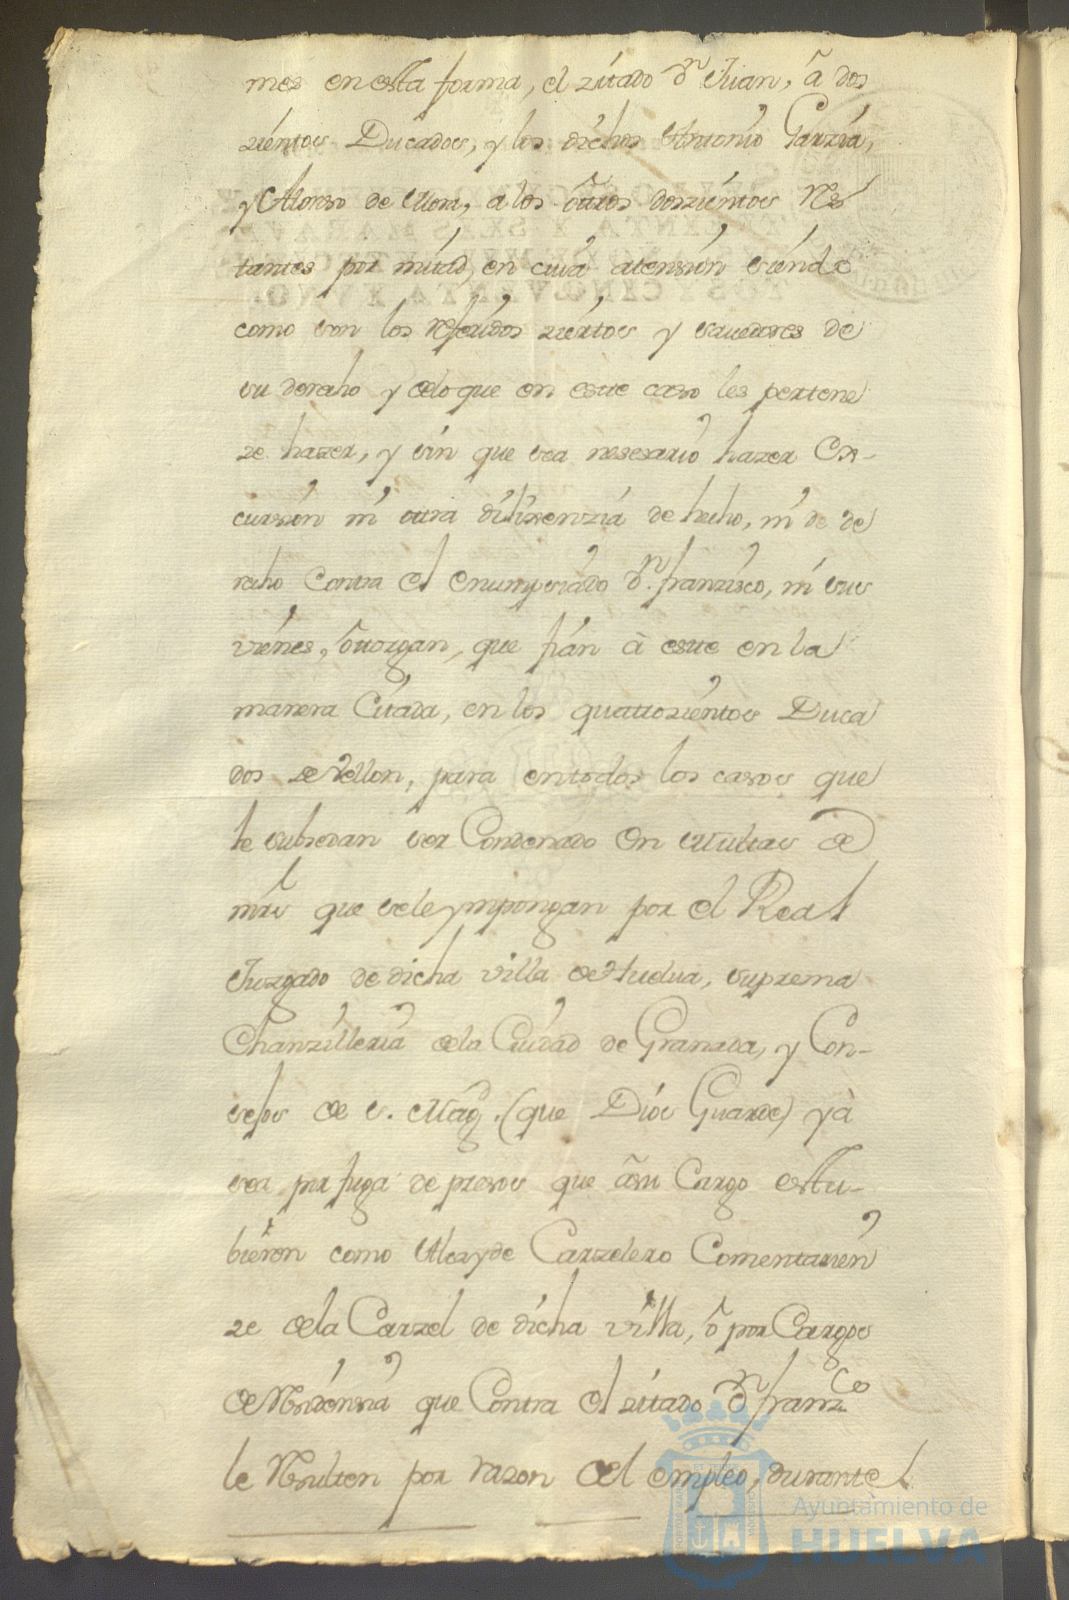 mos en esta forma, el zitado Dn Juan, â dos
zientos Ducados, y los dichos Antonio Garzia,
y Alonso de Mora, a los ôttros doszientos Res
tantes por mitad, en cuia atension siendo
como son los referidos ziertos y sauedores de
su derecho y de lo que en este caso les pertene
ze hazer, y sin que sea nesesario hazer Ex-
cursion ni otra dilixenzia de hecho, ni de de
recho Contra el enumpsiado Dn. franzisco, ni sus
vienes, ôtorgan, que fian à este en la
manera Citada, en los quattrozientos Duca
dos de Vellon, para en todos los casos que
le subzedan ser Condenado en Multas de
mrs que se le ympongan por el Real
Juzgado de dicha villa de Huelua, suprema
Chanzilleria de la Ciudad de Granada, y Con-
sejos de S. Magd. (que Dios Guarde) yà
sea por fuga de presos que âsu Cargo estu-
bieron como Alcayde Carzelero Comentarien
ze de la Carzel de dicha villa, ô por Cargos
de Residensia que Contra el zitado Dn franzco
le Resulten por razon del empleo, durante l
Ayuntamiento de
HUELVA